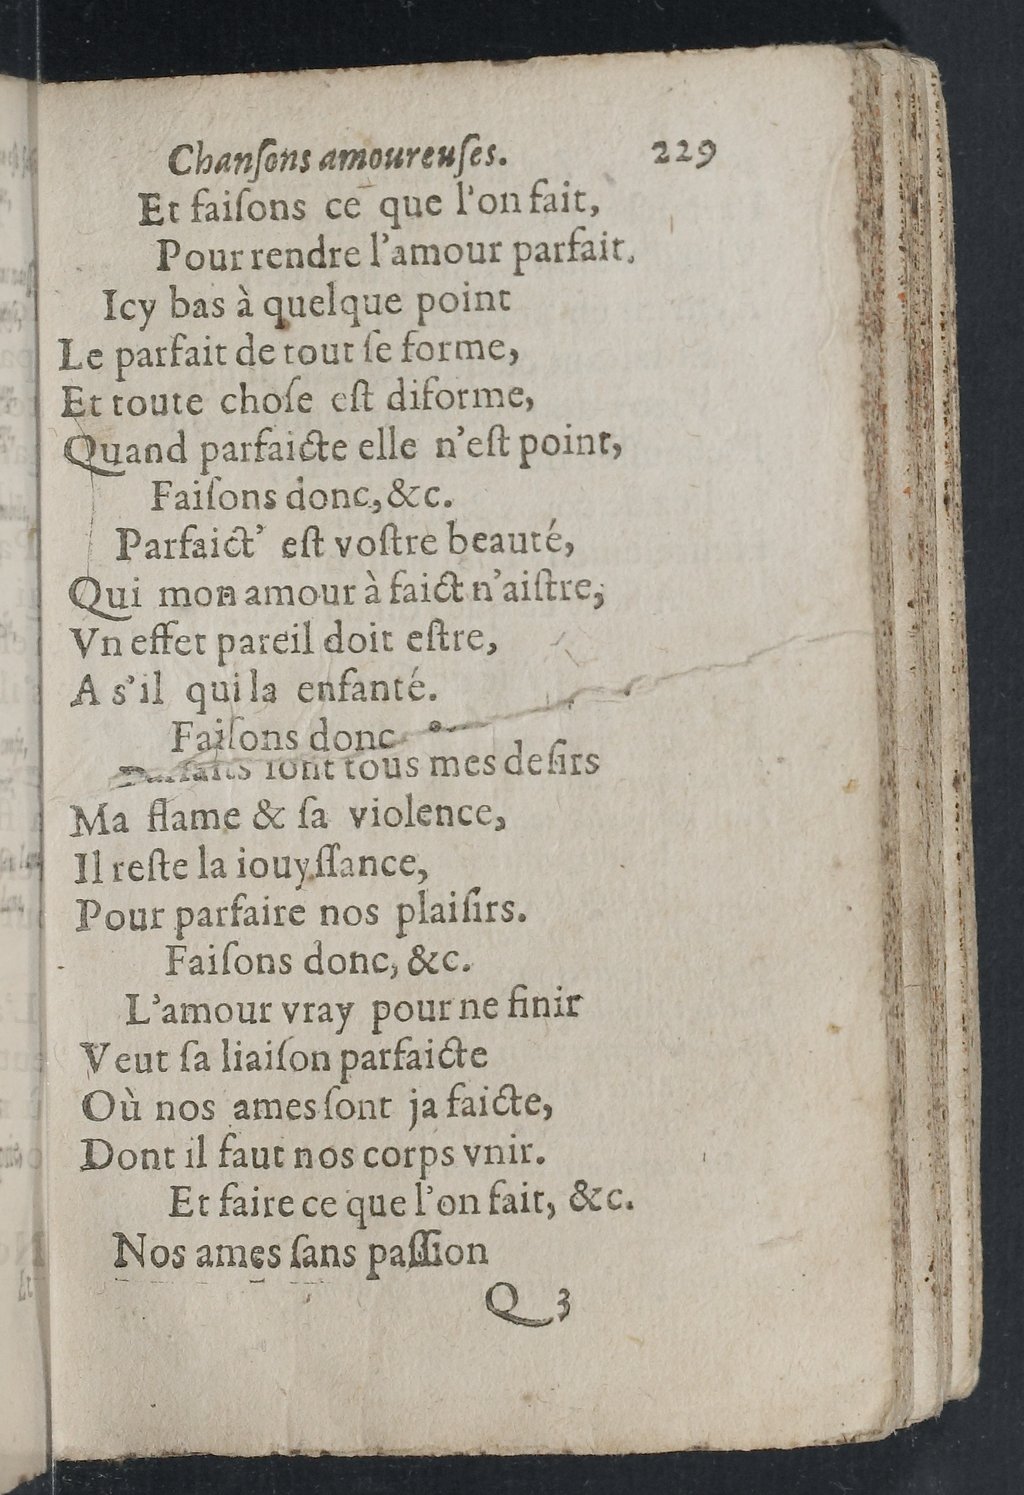 Chanſons amoureuſes. 229
Et faiſons ce que l'on fait,
Pour rendre l'amour parfait.
Icy bas à quelque point
Le parfait de tout ſe forme,
Et toute choſe eſt diforme,
Quand parfaicte elle n'eſt point,
Faiſons donc, &c.
Parfaict' eſt voſtre beauté,
Qui mon amour à faict n'aiſtre;
Vn effet pareil doit eſtre,
A s'il qui la enfanté.
Faiſons donc
Parfaits ſont tous mes deſirs
Ma flame & ſa violence,
Il reſte la iouyſſance,
Pour parfaire nos plaiſirs.
Faiſons donc, &c.
L'amour vray pour ne finir
Veut ſa liaiſon parfaicte
Où nos ames ſont ja faicte,
Dont il faut nos corps vnir.
Et faire ce que l'on fait, &c.
Nos ames ſans paſſion
Q 3